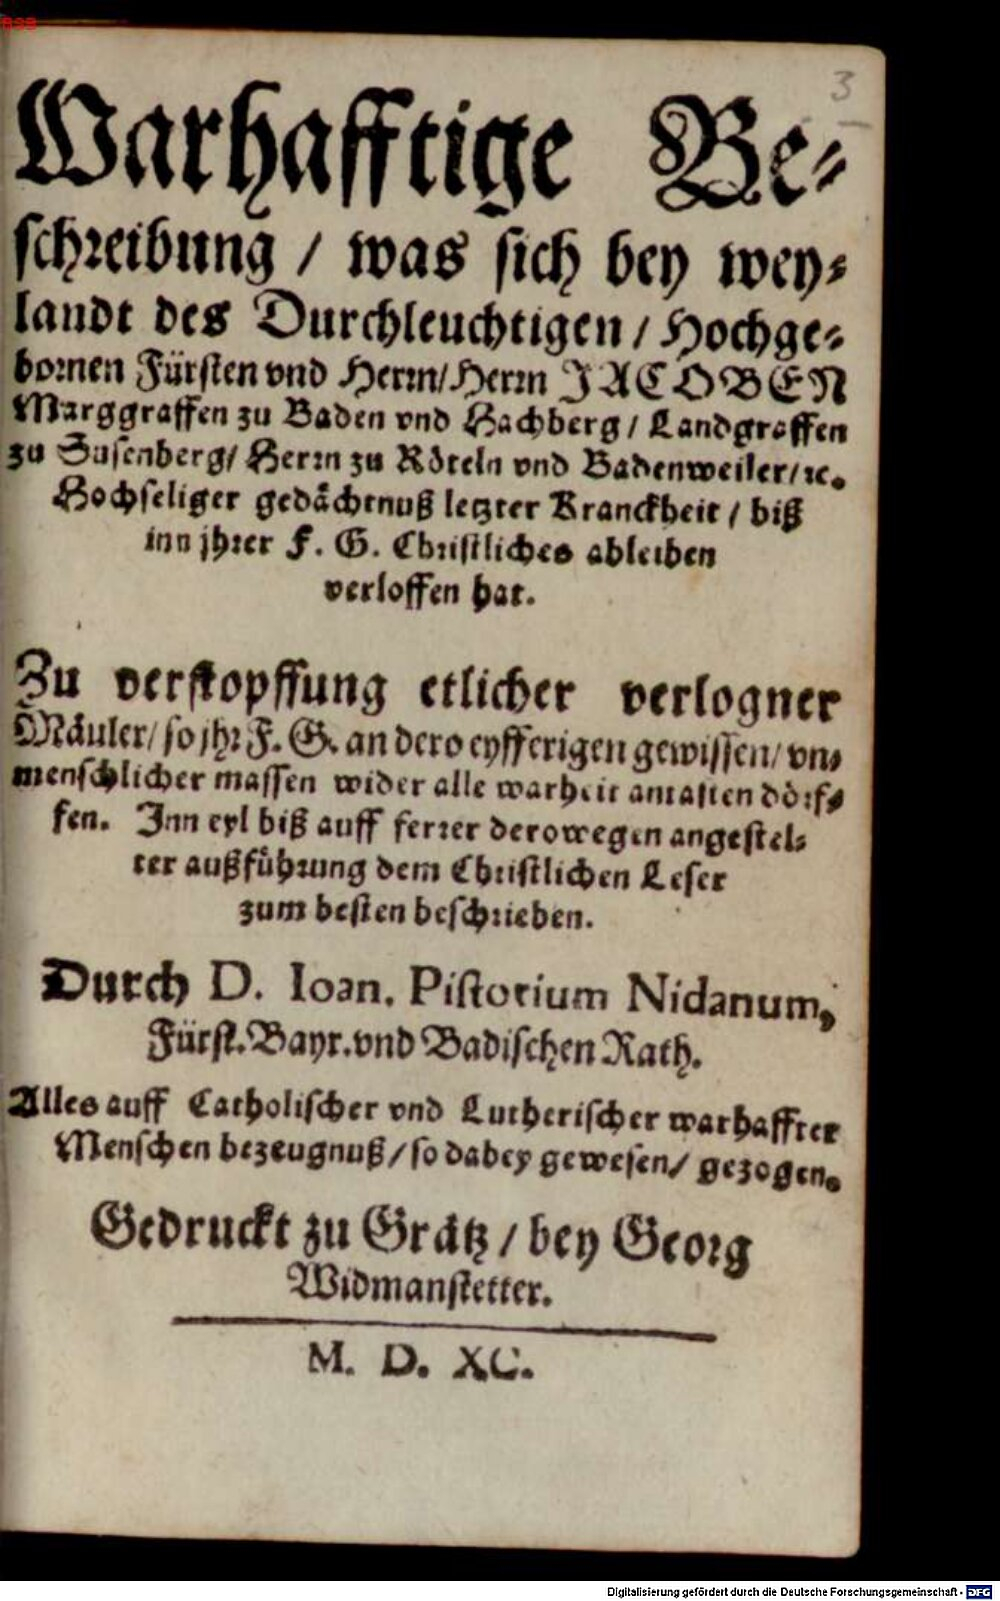 833
3
Warhafftige Be⸗
schreibung / was sich bey wey⸗
landt des Durchleuchtigen / Hochge⸗
bornen Fürsten vnd Herrn / Herrn JACOBEN
Marggraffen zu Baden vnd Hachberg / Landgraffen
zu Susenberg / Herrn zu Röteln vnd Badenweiler / ꝛc.
Hochseliger gedächtnuß letzter Kranckheit / biß
inn jhrer F. G. Christliches ableiben
verloffen hat.
Zu verstopffung etlicher verlogner
Mäuler / so jhr F. G. an dero eyfferigen gewissen / vn⸗
menschlicher massen wider alle warheit antasten dörf⸗
fen. Inn eyl biß auff ferrer derowegen angestel⸗
ter außführung dem Christlichen Leser
zum besten beschrieben.
Durch D. Ioan. Pistorium Nidanum,
Fürst. Bayr. vnd Badischen Rath.
Alles auff Catholischer vnd Lutherischer warhaffter
Menschen bezeugnuß / so dabey gewesen / gezogen.
Gedruckt zu Grätz / bey Georg
Widmanstetter.
M. D. XC.
Digitalisierung gefördert durch die Deutsche Forschungsgemeinschaft - DFG